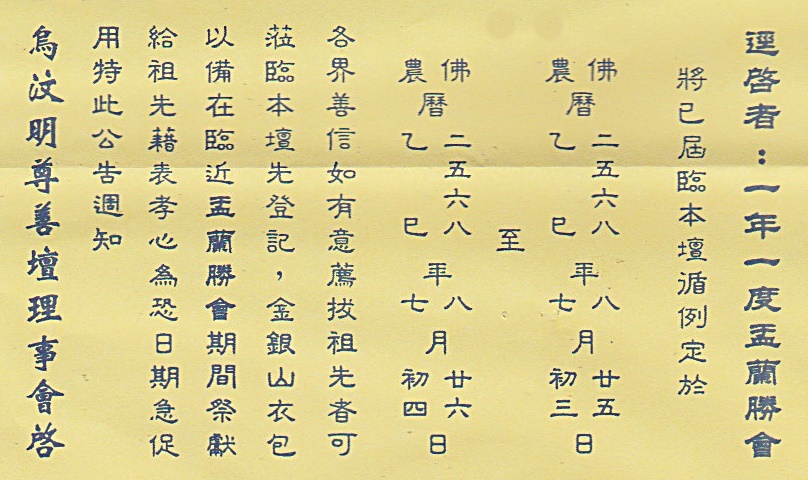 逕啓者：一年一度盂蘭勝會
將已屆臨本壇循例定於
佛 二五六八 八 廿五
曆 年 月 日
農 乙巳 七 初三
至
佛 二五六八 八 廿六
曆 年 月 日
農 乙巳 七 初四
各界善信如有意薦拔祖先者可
蒞臨本壇先登記，金銀山衣包
以備在臨近盂蘭勝會期間祭獻
給祖先藉表孝心為恐日期急促
用特此公告週知
烏汶明尊善壇理事會啓